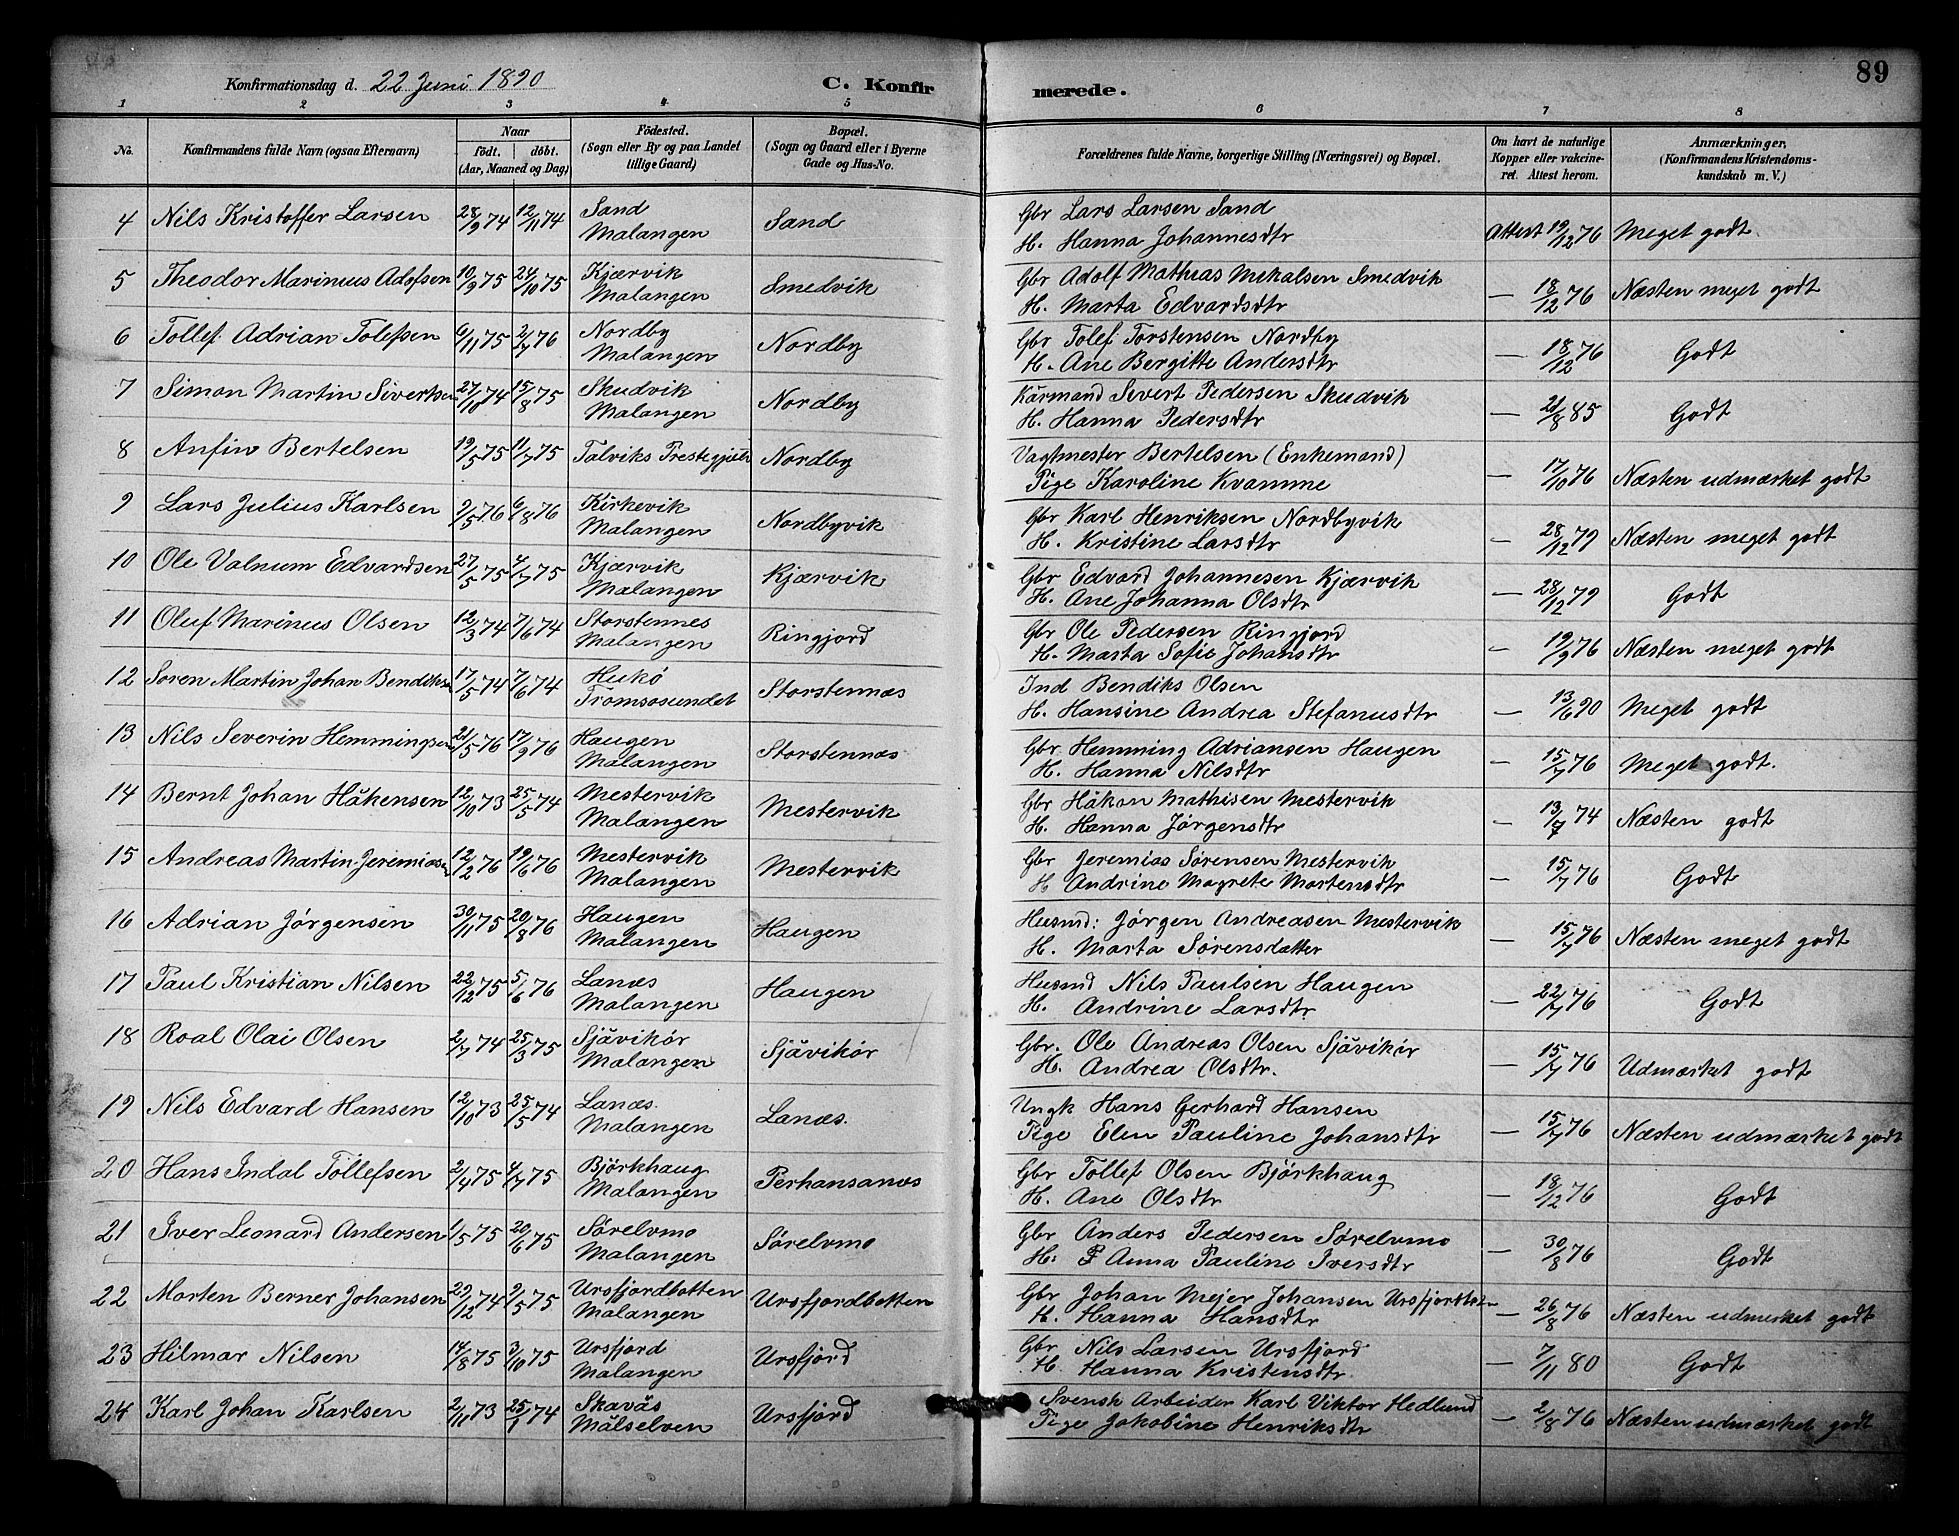 89
Konfirmationsdag d. 22 Juni 1890 C. Konfirmerede.
1 2 3 4 5 6 7 8
No. Konfirmandens fulde Navn (ogsaa Efternavn) Naar födt. döbt. (Aar, Maaned og Dag) Födested. (Sogn eller By og paa Landet tillige Gaard) Bopæl. (Sogn og Gaard eller i Byerne Gade og Hus-No. Forældrenes fulde Navne, borgerlige Stilling (Næringsvei) og Bopæl. Om havt de naturlige Kopper eller vakcineret. Attest herom. Anmærkninger, (Konfirmandens Kristendomskundskab m. V.)
4 Nils Kristoffer Larsen 28/9 74 12/11 74 Sand Malangen Sand Gbr Lars Larsen Sand H. Hanna Johannesdtr Attest 19/12 76 Meget godt
5 Theodor Marinius Adofsen 10/9 75 24/10 75 Kjærvik Malangen Smedvik Gbr Adolf Mathias Mikalsen Smedvik H. Marta Edvardsdtr — 18/12 76 Næsten meget godt
6 Tollef Adrian Tolefsen 6/11 75 2/7 76 Nordby Malangen Nordby Gbr Tolef Torstensen Nordby H. Ane Bergitte Andersdtr — 18/12 76 Godt
7 Simon Martin Sivertsen 27/10 74 15/8 75 Skudvik Malangen Nordby Kårmand Sivert Pedersen Skudvik H. Hanna Pedersdtr — 21/8 85 Godt
8 Anfin Bertelsen 19/5 75 11/7 75 Talviks Prestegjeld Nordby Vagtmester Bertelsen (Enkemand) Pige Karoline Kvamme — 17/10 76 Næsten udmærket godt
9 Lars Julius Karlsen 2/5 76 6/8 76 Kirkevik Malangen Nordbyvik Gbr Karl Henriksen Nordbyvik H. Kristine Larsdtr — 28/12 79 Næsten meget godt
10 Ole Valnum Edvardsen 27/5 75 4/7 75 Kjærvik Malangen Kjærvik Gbr Edvard Johannesen Kjærvik H. Ane Johanna Olsdtr — 28/12 79 Godt
11 Oluf Marinus Olsen 12/3 74 7/6 74 Storstennes Malangen Ringjord Gbr Ole Pedersen Ringjord H. Marta Sofie Johansdtr — 19/9 76 Næsten meget godt
12 Soren Martin Johan Bendiksen 17/5 74 7/6 74 Tromsosundet Storstennæs Ind Bendiks Olsen H. Hansine Andrea Stefanusdtr — 13/6 90 Meget godt
13 Nils Severin Hemmingsen 21/5 76 17/9 76 Haugen Malangen Storstennæs Gbr Hemming Adriansen Haugen H. Hanna Nilsdtr — 15/7 76 Meget godt.
14 Bernt Johan Håkensen 12/10 73 25/5 74 Mestervik Malangen Mestervik Gbr Håkon Mathisen Mestervik H. Hanna Jørgensdtr — 13/7 74 Næsten godt
15 Andreas Martin Jeremiasen 12/2 76 19/6 76 Mestervik Malangen Mestervik Gbr Jeremias Sørensen Mestervik H Andrine Magrete Mortensdtr — 15/7 76 Godt
16 Adrian Jørgensen 30/11 75 20/8 76 Haugen Malangen Haugen Husmd: Jørgen Andreasen Mestervik H. Marta Sørensdatter — 15/7 76 Næsten meget godt
17 Paul Kristian Nilsen 22/12 75 5/6 76 Lanæs Malangen Haugen Husmd Nils Paulsen Haugen H. Andrine Larsdtr. — 22/7 76 Godt
18 Roal Olai Olsen 2/7 74 25/3 75 Sjåvikør Malangen Sjåvikør Gbr. Ole Andreas Olsen Sjåvikør H. Andrea Olsdtr. — 15/7 76 Udmærket godt
19 Nils Edvard Hansen 12/10 73 25/5 74 Lanæs. Malangen Lanæs. Ungk Hans Gerhard Hansen Pige Elen Pauline Johansdtr — 15/7 76 Næsten udmærket godt
20 Hans Indal Tollefsen 2/4 75 4/7 75 Bjørkhaug Malangen Perhansanæs Gbr Tollef Olsen Bjørkhaug H. Ane Olsdtr — 18/12 76 Godt
21 Iver Leonard Andersen 1/5 75 20/6 75 Sørelvmo Malangen Sørelvmo Gbr Anders Pedersen Sørelvmo H: P Anna Pauline Iversdtr — 30/8 76 Godt
22 Morten Berner Johansen 29/12 74 2/5 75 Ursfjordbotten Malangen Ursfjordbotten Gbr Johan Mejer Johansen H. Hanna Hansdtr — 26/8 76 Næsten udmerket godt
23 Hilmar Nilsen 14/8 75 3/10 75 Ursfjord Malangen Ursfjord Gbr Nils Larsen Ursfjord H. Hanna Kristensdtr. — 7/11 80 Godt
24 Karl Johan Karlsen 2/11 73 25/1 74 Skavås Målselven Ursfjord Svensk Arbeider Karl Viktor Hedlund Pige Jakobine Henriksdtr — 2/8 76 Næsten udmærket godt